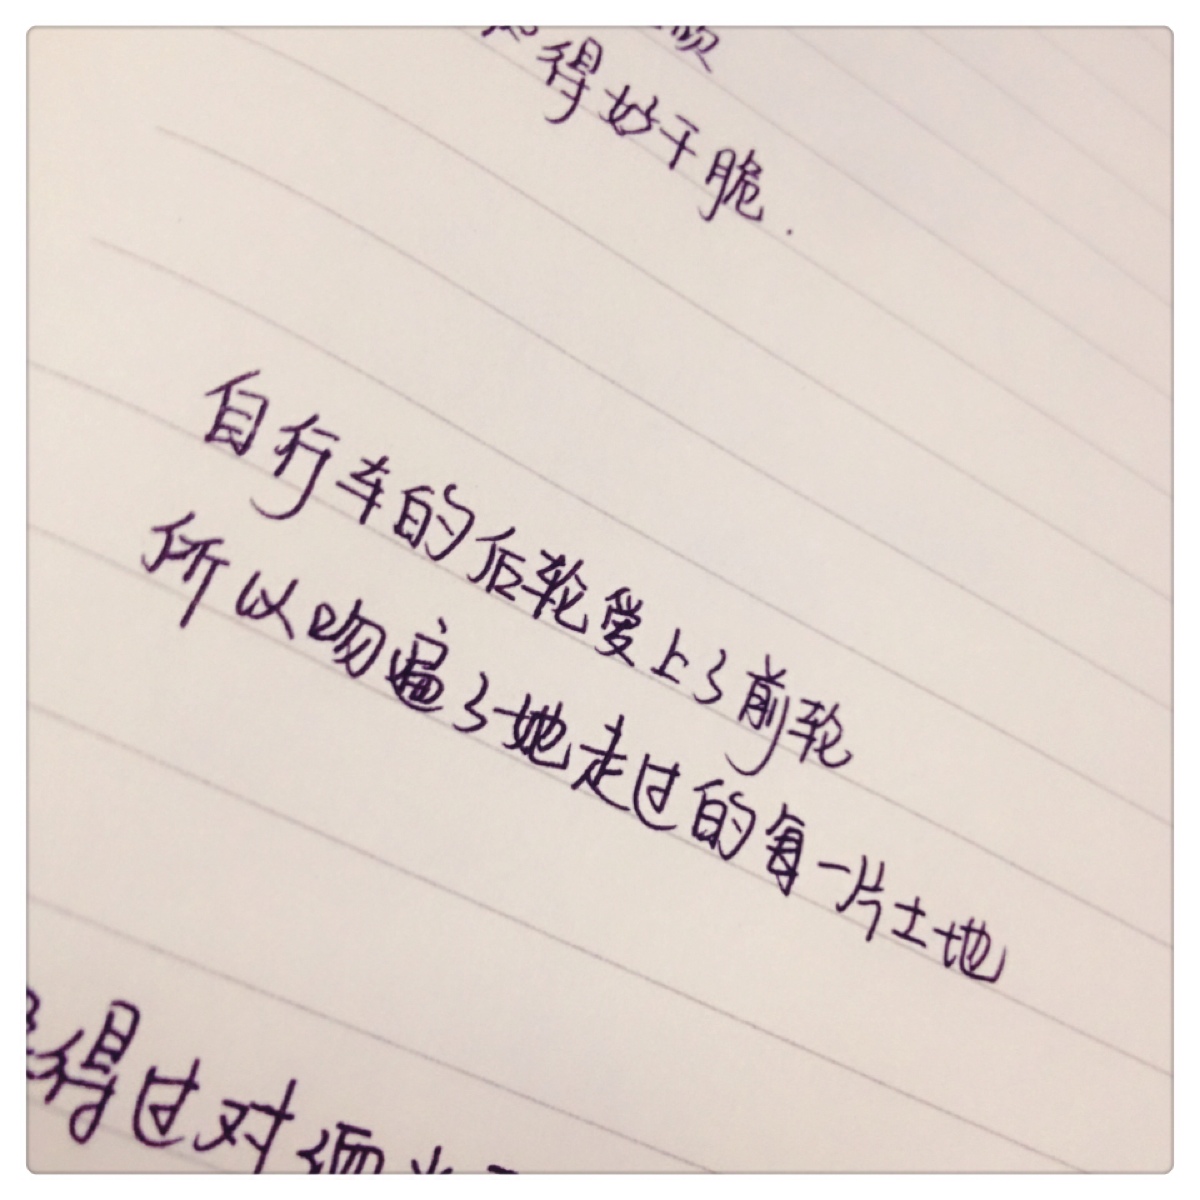 得妙干脆.
自行车的后轮爱上了前轮
所以吻遍了她走过的每一片土地
得过对